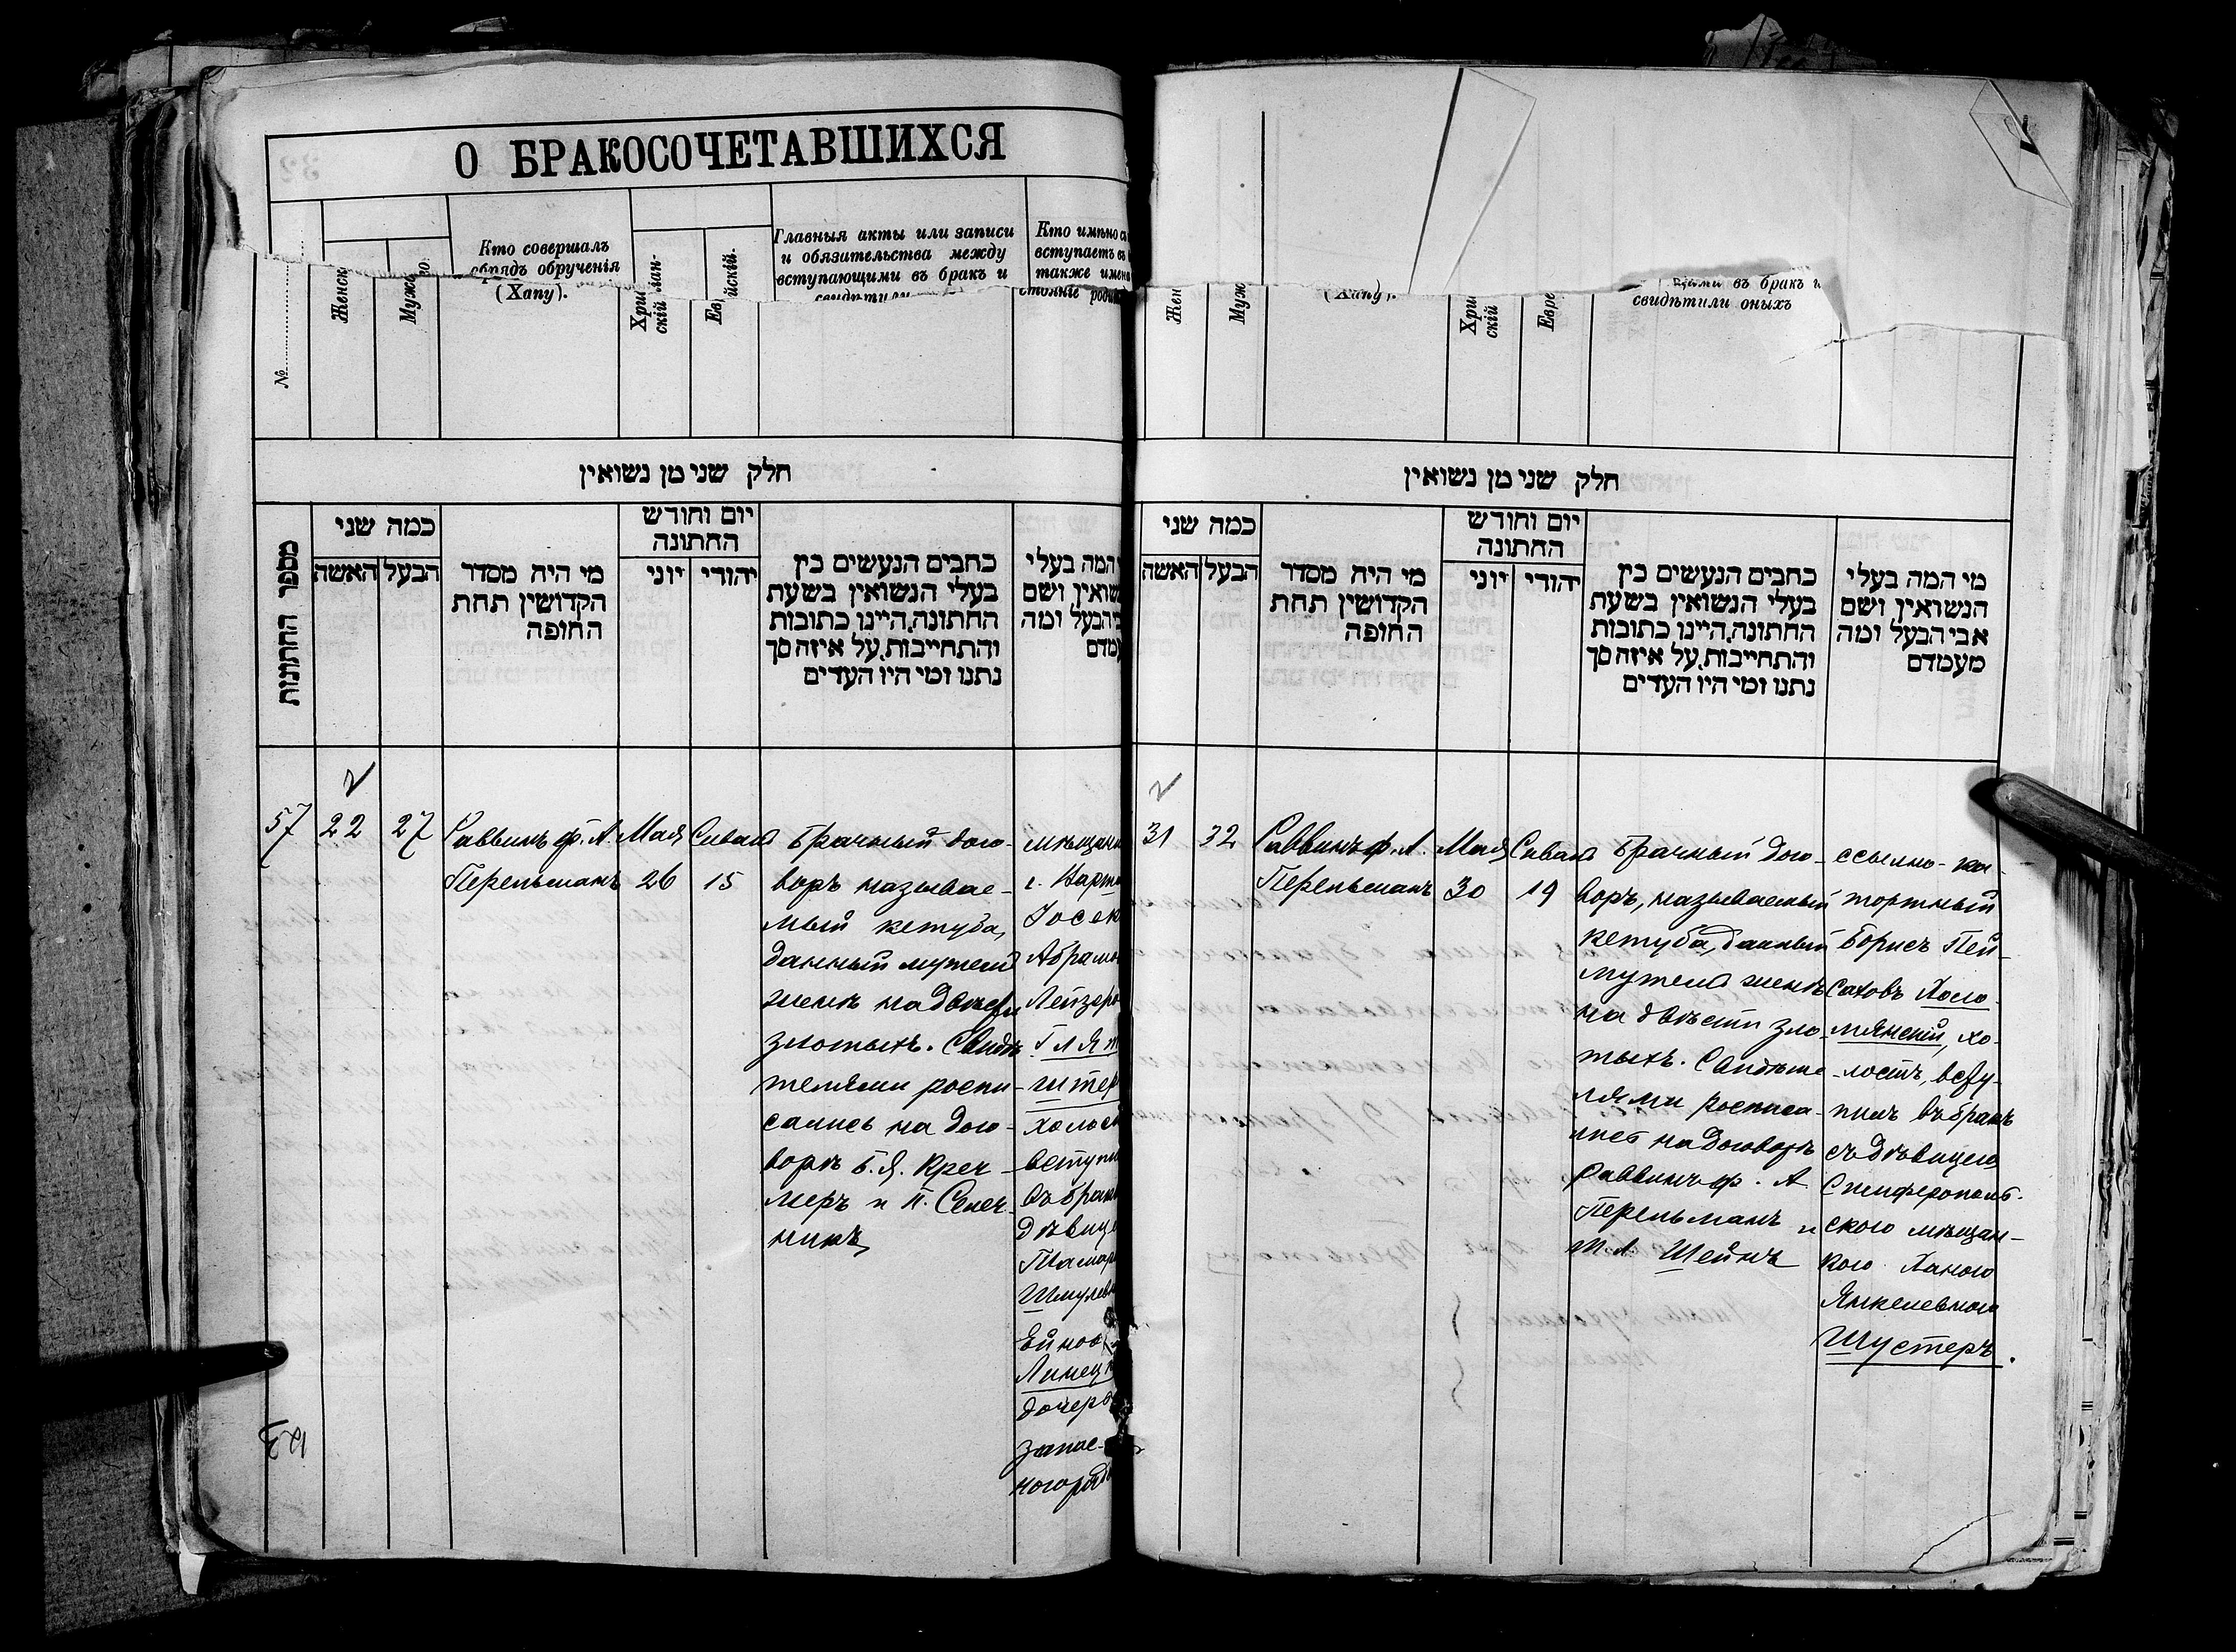 О БРАКОСОЧЕТАВШИХСЯ
№
Женск
Муж
Кто совершалъ
обрядъ обрученія
(Хапу).
Хри
скій
Ев
йскій.
Главныя акты или записи
и обязательства между
вступающими въ бракъ и
Кто имѣно
вступаетъ въ
также имен
стояніе роди
חלק שני מן נשואין
מספר החתונות
כמה שני
האשה
הבעל
מי היה מסדר
הקדושין תחת
החופה
יום וחודש
החתונה
יוני
יהודי
כתבים הנעשים בין
בעלי הנשואין בשעת
החתונה,היינו כתובות
והתחייבות,על איזה סך
נתנו ומי היו העדים
המה בעלי
שואין ושם
הבעל ומה
57
22
27
Раввинъ ф. А.
Перельманъ
Мая
26
Сивана
15
Брачный дого-
воръ называе-
мый кетуба,
данный мужемъ
женѣ на двѣсти
злотыхъ. Свидѣ
телями роспи-
сались на дого-
ворѣ Б. Я. Креч-
меръ и П. Селеч-
никъ
мѣщани
г. Нарт
Іосек
Абрамо
Лейзеро
Гля
штер
холос
вступи
въ брак
дѣвице
Тамар
Шмулев
Линец
дочерь
запас-
ного ряд
123
Жен
Муж
(Хапу).
Хри
скій
Евре
щими въ бракъ и
свидѣтили оныхъ
חלק שני מן נשואין
כמה שני
האשה
הבעל
מי היה מסדר
הקדושין תחת
החופה
יום וחודש
החתונה
יוני
יהודי
כתבים הנעשים בין
בעלי הנשואין בשעת
החתונה,היינו כתובות
והתחייבות,על איזה סך
נתנו ומי היו העדים
מי המה בעלי
הנשואין ושם
אבי הבעל ומה
מעמדם
31
32
Раввинъ ф. А.
Перельманъ
Мая
30
Сивана
19
Брачный дого-
воръ, называемый
кетуба, данный
мужемъ женѣ
на двѣсти зло-
тыхъ. Свидѣте-
лями росписа-
лись на договорѣ
раввинъ ф. А.
Перельманъ и
М. Л. Шейнъ
ссыльно-ка-
торжный
Борисъ Пей-
саховъ Холо-
мянскій, хо-
лостъ, всту-
пилъ въ бракъ
съ дѣвицею
Симферополь-
скою мѣщан-
кою Ханою
Янкелевною
Шустеръ.